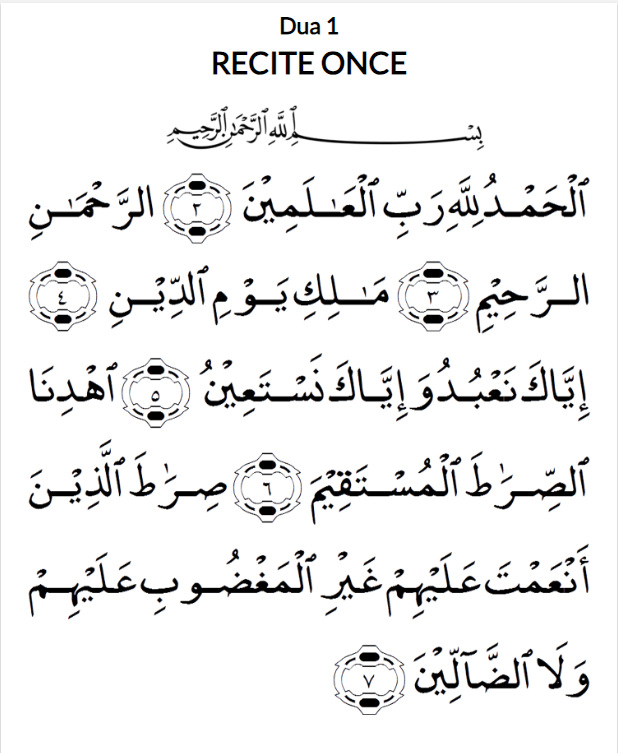 Dua 1
RECITE ONCE
بِسْمِ ٱللَّهِ ٱلرَّحْمَٰنِ ٱلرَّحِيمِ
ٱلْحَمْدُ لِلَّهِ رَبِّ ٱلْعَٰلَمِيْنَ ٢ الرَّحْمَٰنِ
الرَّحِيْمِ ٣ مَٰلِكِ يَوْمِ ٱلدِّيْنِ ٤
إِيَّاكَ نَعْبُدُ وَ إِيَّاكَ نَسْتَعِيْنُ ٥ ٱهْدِنَا
ٱلصِّرَٰطَ ٱلْمُسْتَقِيْمَ ٦ صِرَٰطَ ٱلَّذِيْنَ
أَنْعَمْتَ عَلَيْهِمْ غَيْرِ ٱلْمَغْضُوبِ عَلَيْهِمْ
وَلَا ٱلضَّآلِّيْنَ ٧